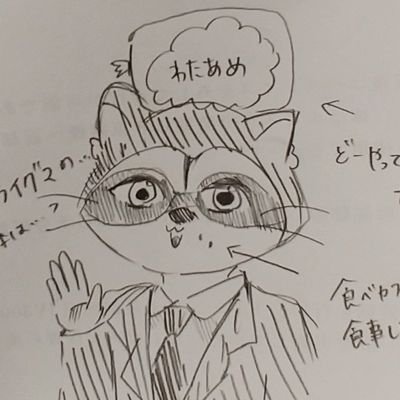 わたあめ
どーやって
ライグマの…
は…?
食べカス
食事し